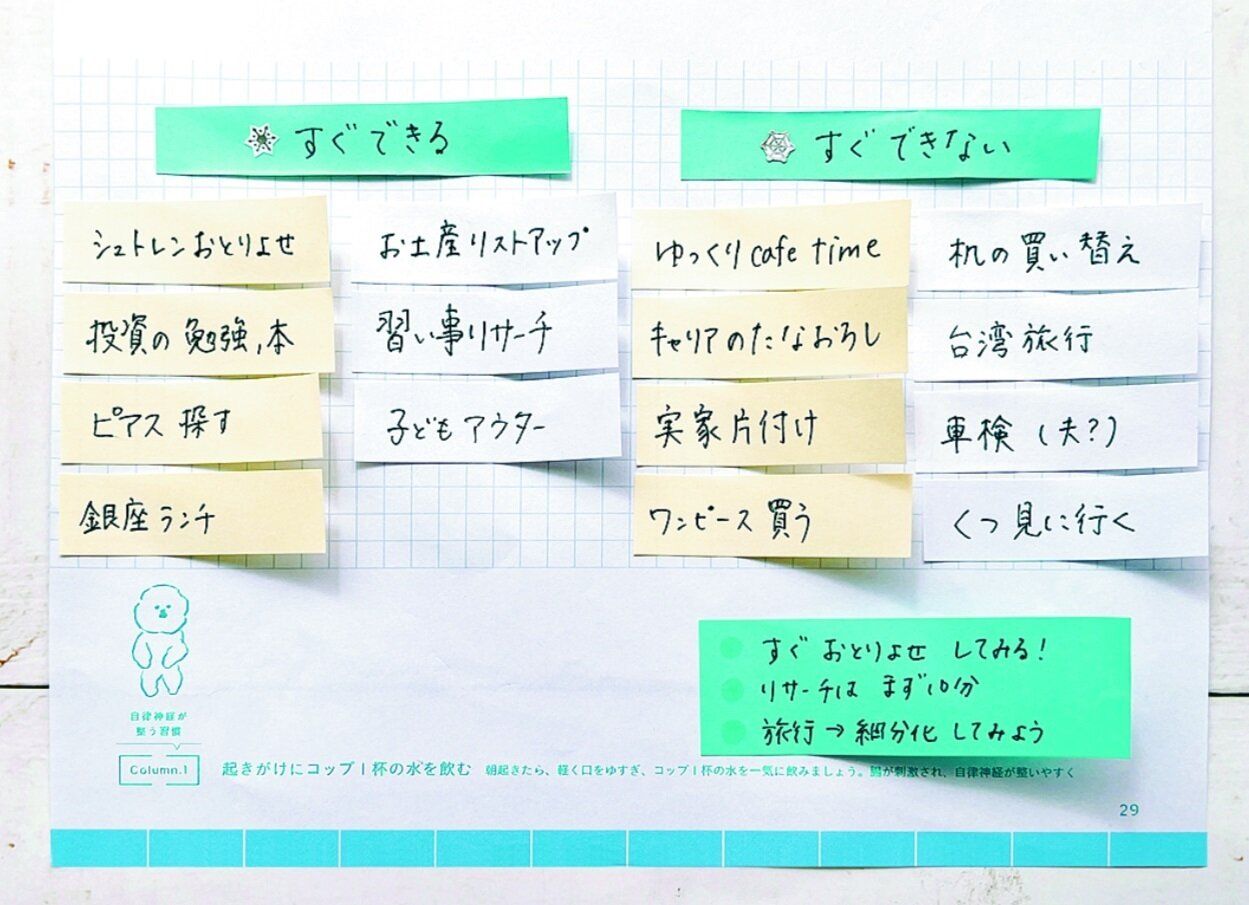 すぐできる
シュトレンおとりよせ
投資の勉強,本
ピアス探す
銀座ランチ
お土産リストアップ
習い事リサーチ
子どもアウター
すぐできない
ゆっくりcafe time
キャリアのたなおろし
実家片付け
ワンピース買う
机の買い替え
台湾旅行
車検(夫?)
くつ見に行く
すぐおとりよせしてみる!
リサーチはまず10分
旅行→細分化してみよう
自律神経が
整う習慣
Column.1
起きがけにコップ1杯の水を飲む 朝起きたら、軽く口をゆすぎ、コップ1杯の水を一気に飲みましょう。腸が刺激され、自律神経が整いやすく
29